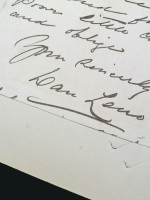 little
and oblige
Yours sincerely
Dan Leno